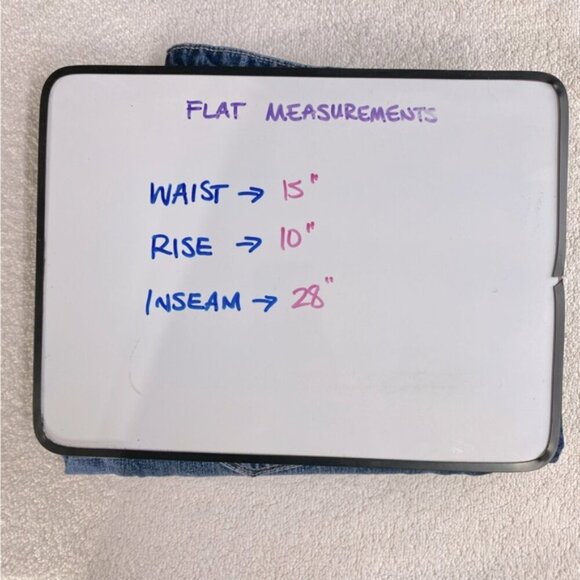 FLAT MEASUREMENTS
WAIST → 15"
RISE → 10"
INSEAM → 28"